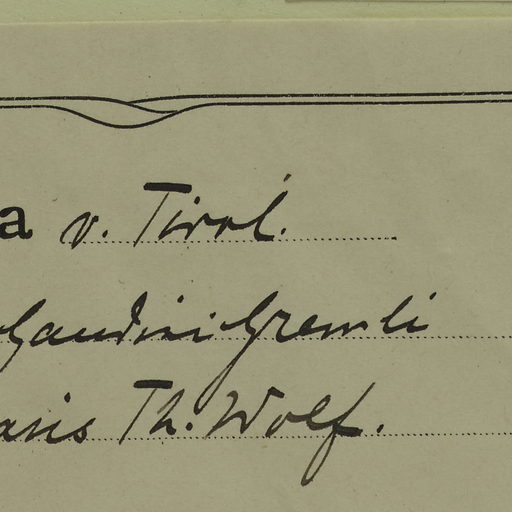 a v. Tirol.
Gaudini Gremli
aris Th. Wolf.